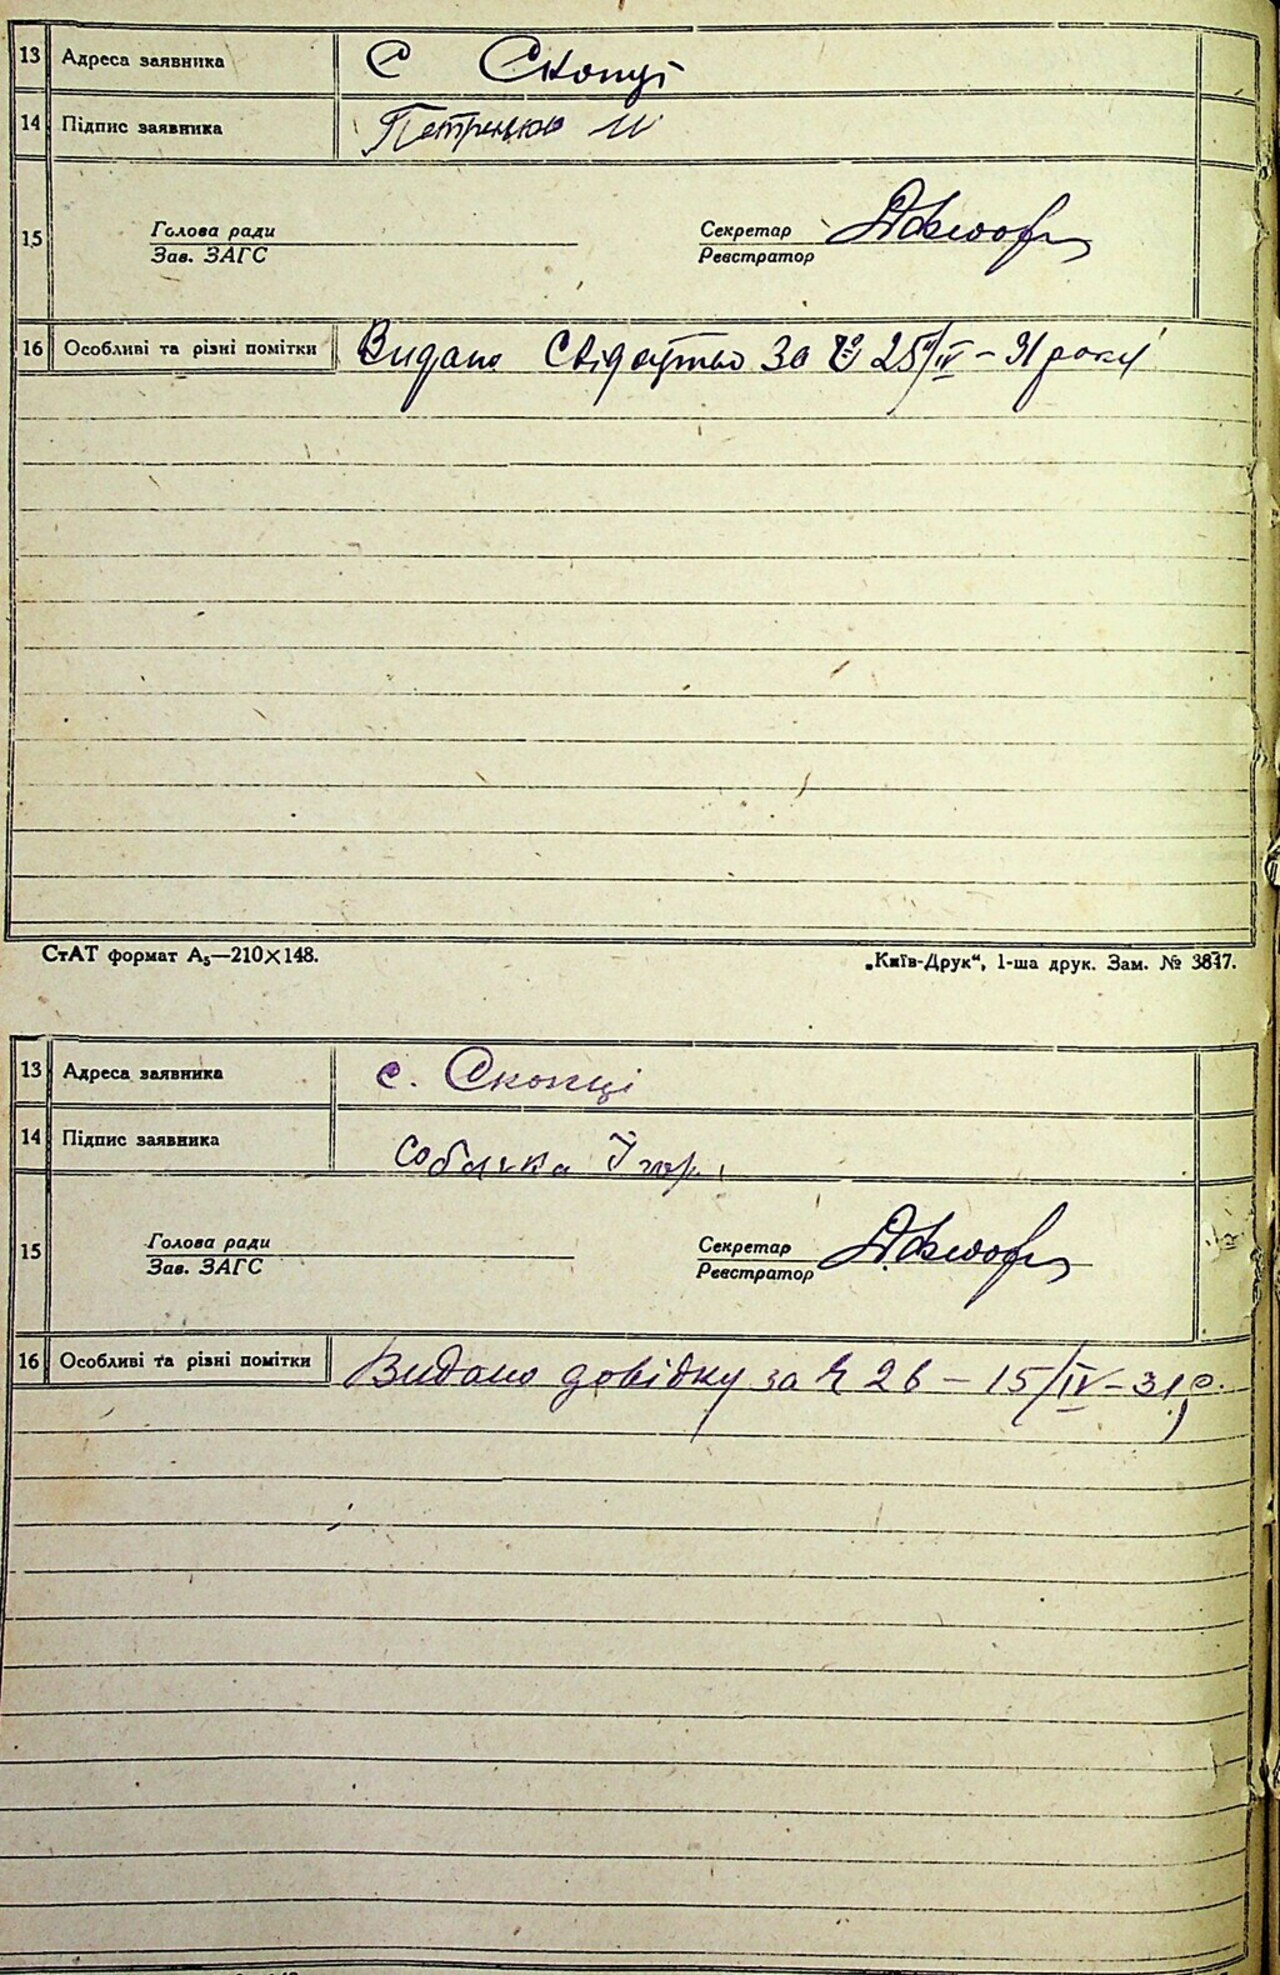 13 Адреса заявника С Скопці
14 Підпис заявника Петренко
15 Голова ради Секретар
Зав. ЗАГС Реєстратор
16 Особливі та різні помітки Видано Свідоцтво За № 25 /IV – 31 року
СтАТ формат А₅—210×148. „Київ-Друк“, 1-ша друк. Зам. № 3847.
13 Адреса заявника с. Скопці
14 Підпис заявника Собачка
15 Голова ради Секретар
Зав. ЗАГС Реєстратор
16 Особливі та різні помітки Видано довідку за № 26 – 15/IV – 31 р.